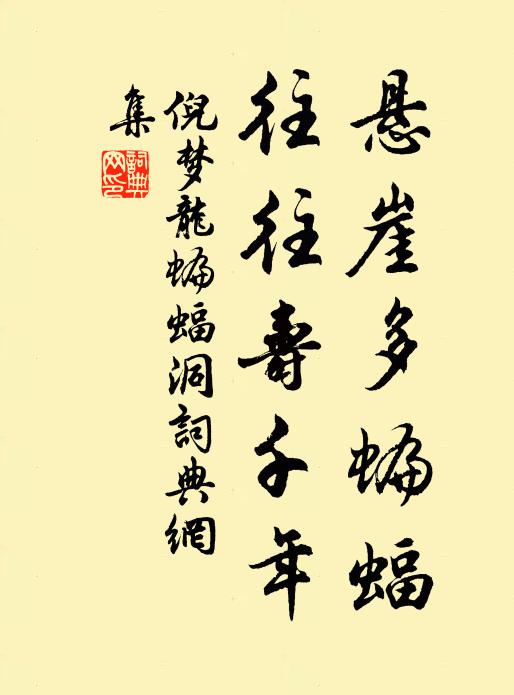 悬崖多蝙蝠
往往壽千年
倪梦龍蝙蝠洞詞典網
集
詞典
网印